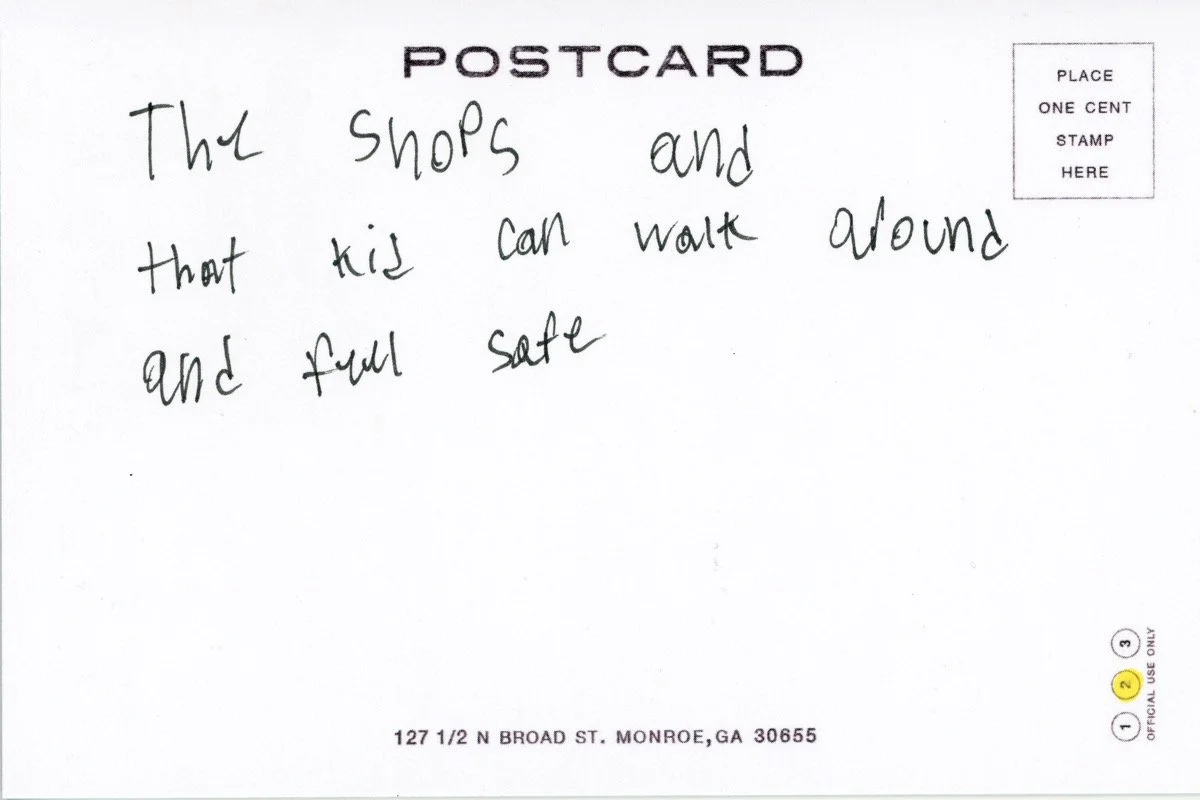 POSTCARD
PLACE
ONE CENT
STAMP
HERE
The shops and
that kid can walk around
and full safe
127 1/2 N BROAD ST. MONROE, GA 30655
1 2 3
OFFICIAL USE ONLY